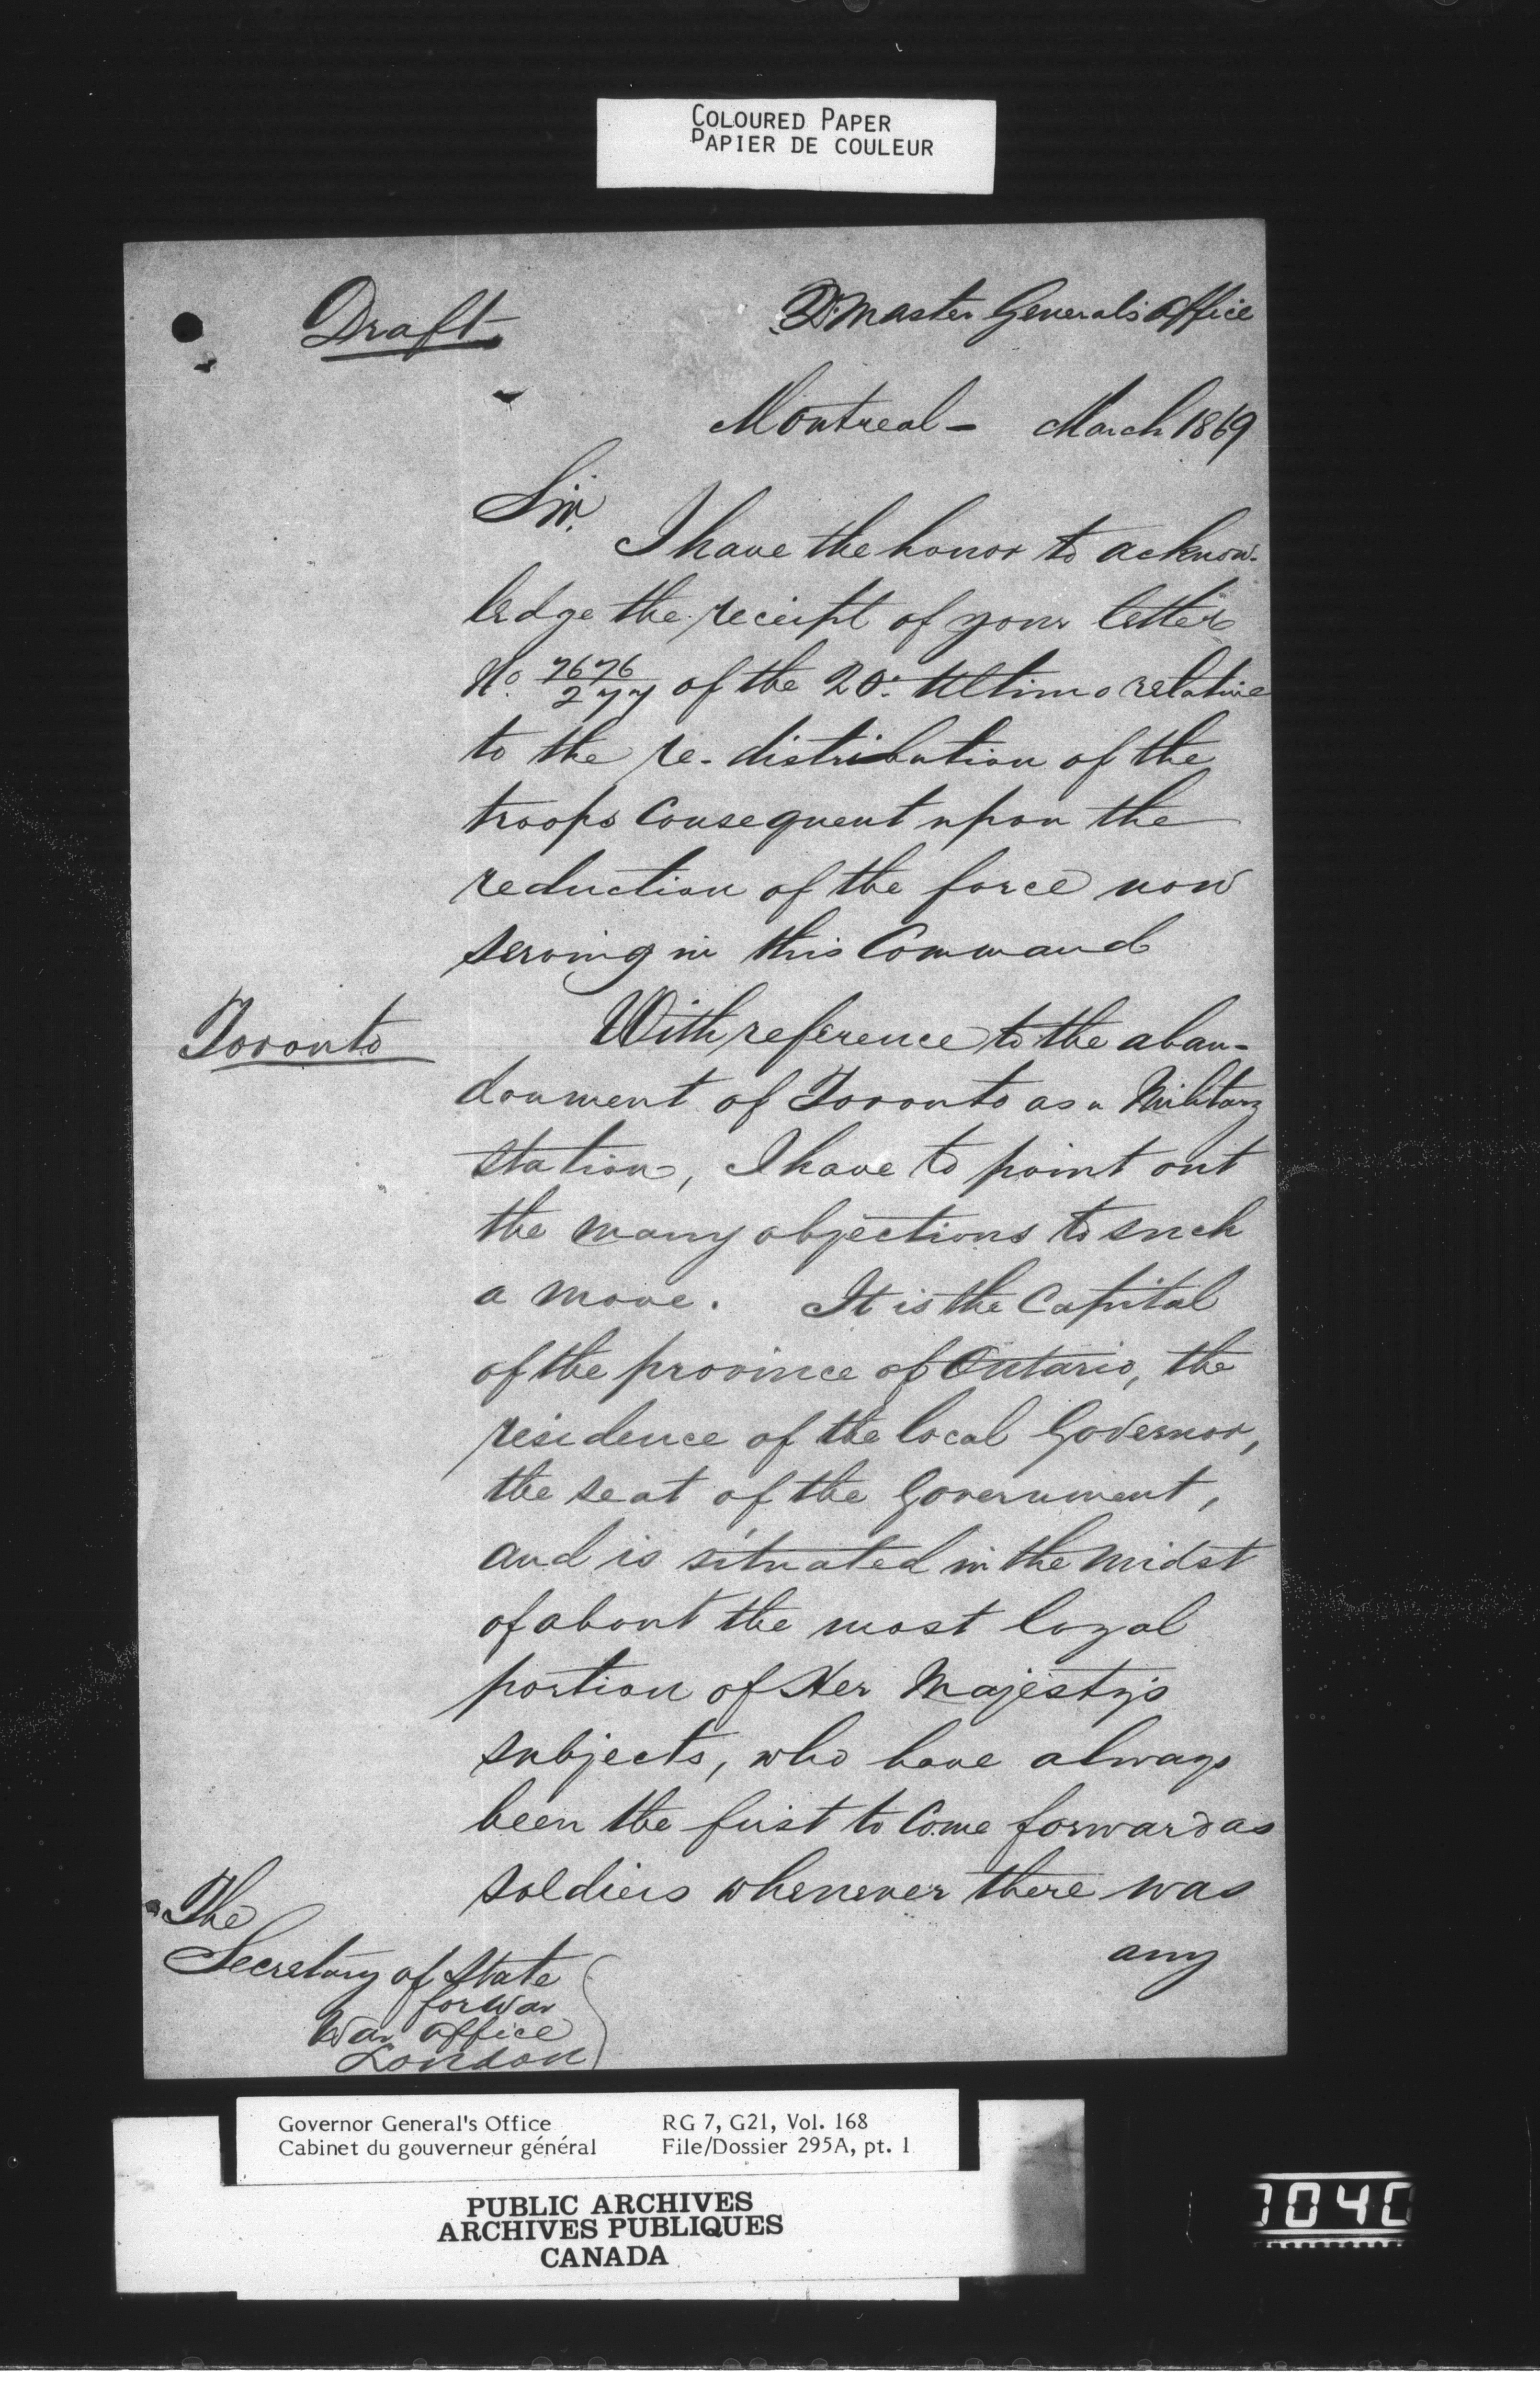 COLOURED PAPER
PAPIER DE COULEUR
Draft
Qr Master General's Office
Montreal - March 1869
Sir.
I have the honor to acknow-
ledge the receipt of your letter
No. 7676/277 of the 20th Ultimo relative
to the re-distribution of the
troops Consequent upon the
reduction of the force now
serving in this Command
Toronto
With reference to the aban-
donment of Toronto as a Military
station, I have to point out
the many objections to such
a move. It is the Capital
of the province of Ontario, the
residence of the local Governor,
the seat of the Government,
and is situated in the midst
of about the most loyal
portion of Her Majesty's
subjects, who have always
been the first to Come forward as
soldiers whenever there was
any
The
Secretary of State
for War
War Office
London
Governor General's Office
Cabinet du gouverneur général
RG 7, G21, Vol. 168
File/Dossier 295A, pt. 1
PUBLIC ARCHIVES
ARCHIVES PUBLIQUES
CANADA
1040